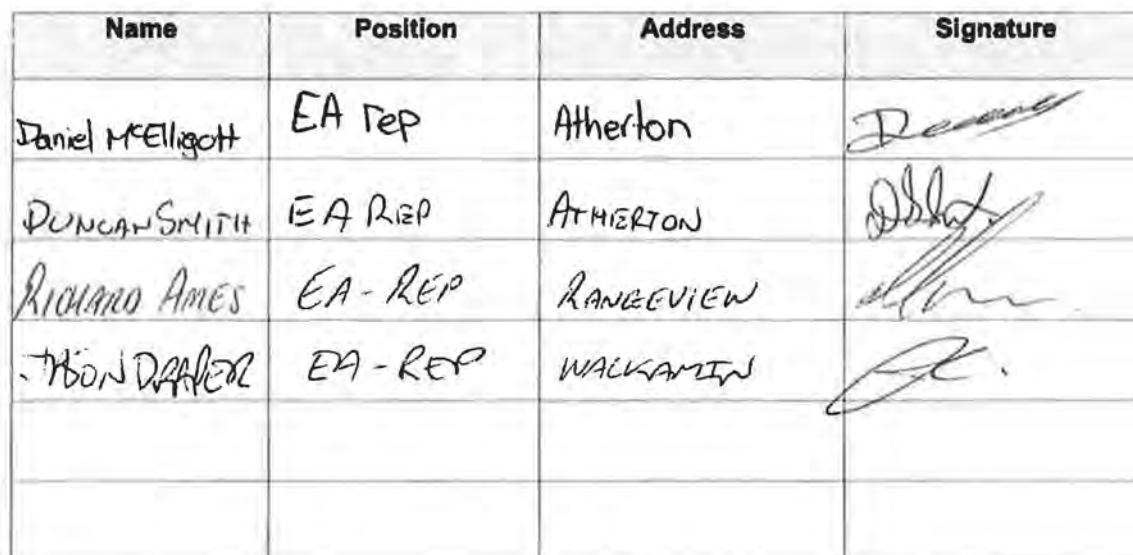 Name Position Address Signature
Daniel McElligott EA rep Atherton
DUNCAN SMITH EA REP ATHERTON
RICHARD AMES EA-REP RANGEVIEW
DRAPER EA-REP WALKAMIN